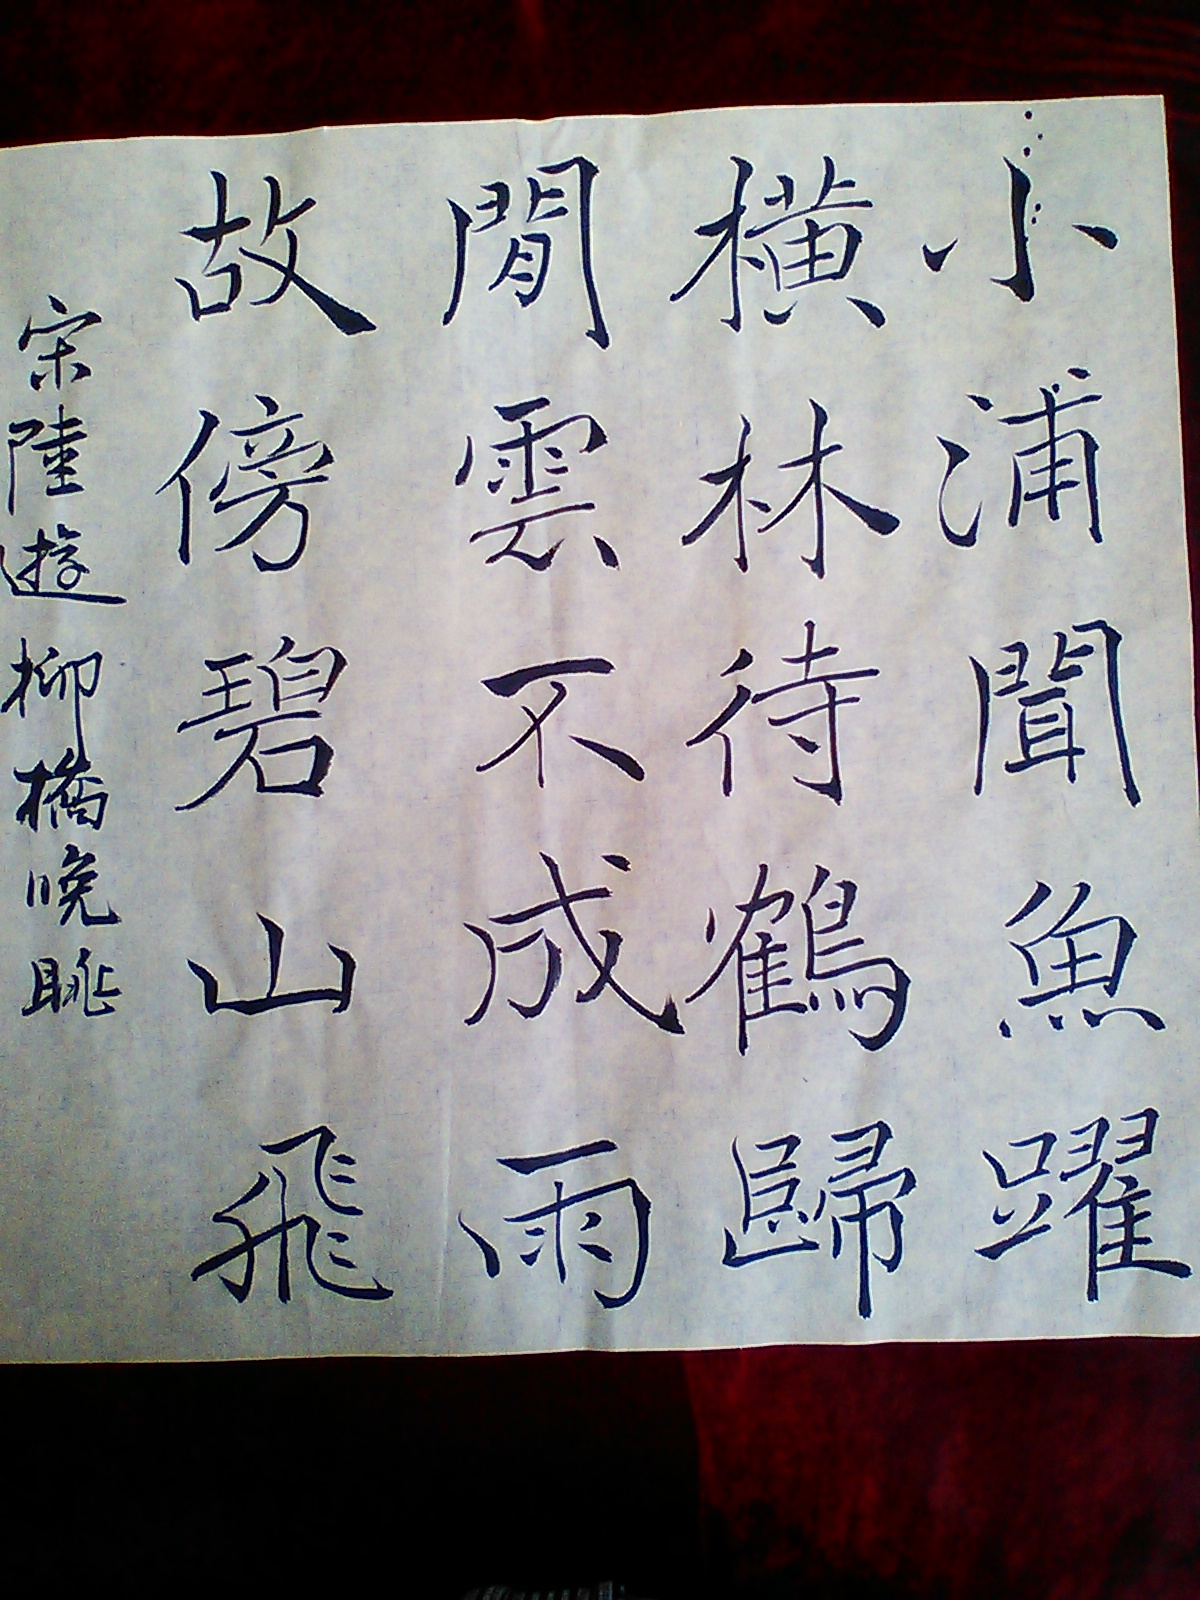 小浦聞魚躍
橫林待鶴歸
閒雲不成雨
故傍碧山飛
宋陸遊柳橋晚眺